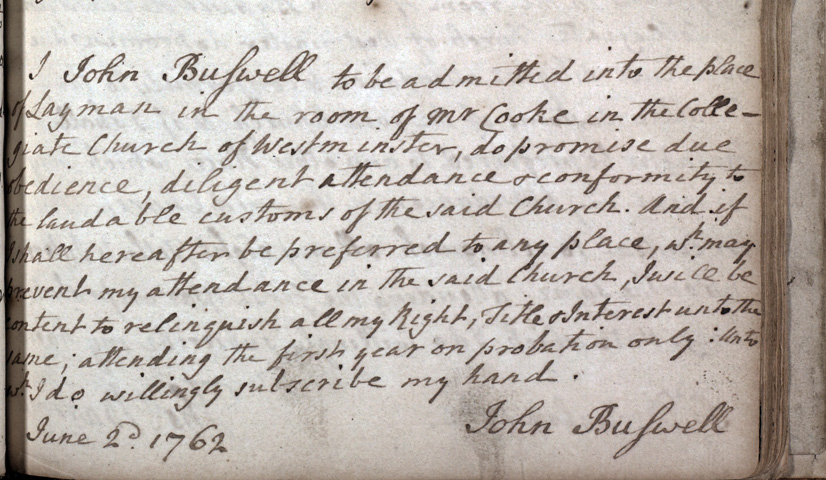 I John Buſwell to be admitted into the place
of Layman in the room of Mr Cooke in the Colle-
giate Church of Westminster, do promise due
obedience, diligent attendance & conformity to
the laudable customs of the said Church. And if
I shall hereafter be preferred to any place, wch. may
prevent my attendance in the said Church, I will be
content to relinquish all my Right, Title & Interest unto the
same; attending the first year on probation only: Unto
wch. I do willingly subscribe my hand.
June 2d. 1762 John Buſwell